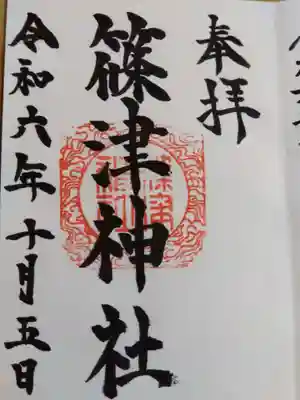 奉拝
篠津神社
令和六年十月五日